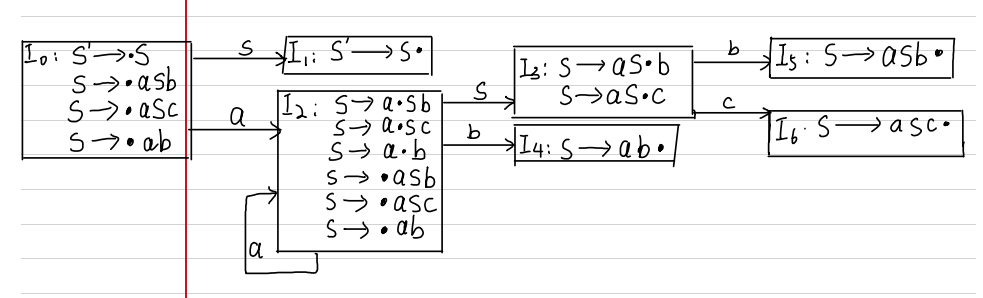 I₀: S' → ·S
S → ·aSb
S → ·aSc
S → ·ab
S
a
I₁: S' → S·
I₂: S → a·Sb
S → a·Sc
S → a·b
S → ·aSb
S → ·aSc
S → ·ab
a
S
b
I₃: S → aS·b
S → aS·c
I₄: S → ab·
b
c
I₅: S → aSb·
I₆· S → aSc·